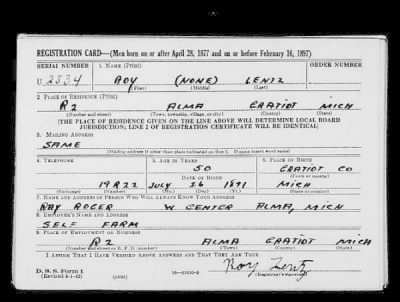 REGISTRATION CARD—(Men born on or after April 28, 1877 and on or before February 16, 1897)
SERIAL NUMBER 1. NAME (Print) ORDER NUMBER
U 2834 ROY (NONE) LENTZ
(First) (Middle) (Last)
2. PLACE OF RESIDENCE (Print)
R2 ALMA GRATIOT MICH
(Number and street) (Town, township, village, or city) (County) (State)
[THE PLACE OF RESIDENCE GIVEN ON THE LINE ABOVE WILL DETERMINE LOCAL BOARD
JURISDICTION; LINE 2 OF REGISTRATION CERTIFICATE WILL BE IDENTICAL]
3. MAILING ADDRESS
SAME
(Mailing address if other than place indicated on line 2. If same insert word same)
4. TELEPHONE 5. AGE IN YEARS 6. PLACE OF BIRTH
50 GRATIOT CO
DATE OF BIRTH (Town or county)
19R22 JULY 26 1891 MICH
(Exchange) (Number) (Mo.) (Day) (Yr.) (State or country)
7. NAME AND ADDRESS OF PERSON WHO WILL ALWAYS KNOW YOUR ADDRESS
RAY ROGER W. CENTER ALMA, MICH
8. EMPLOYER'S NAME AND ADDRESS
SELF FARM
9. PLACE OF EMPLOYMENT OR BUSINESS
R2 ALMA GRATIOT MICH
(Number and street or R. F. D. number) (Town) (County) (State)
I AFFIRM THAT I HAVE VERIFIED ABOVE ANSWERS AND THAT THEY ARE TRUE.
D. S. S. Form 1
(Revised 4-1-42) (over)
Roy Lentz
(Registrant's signature)